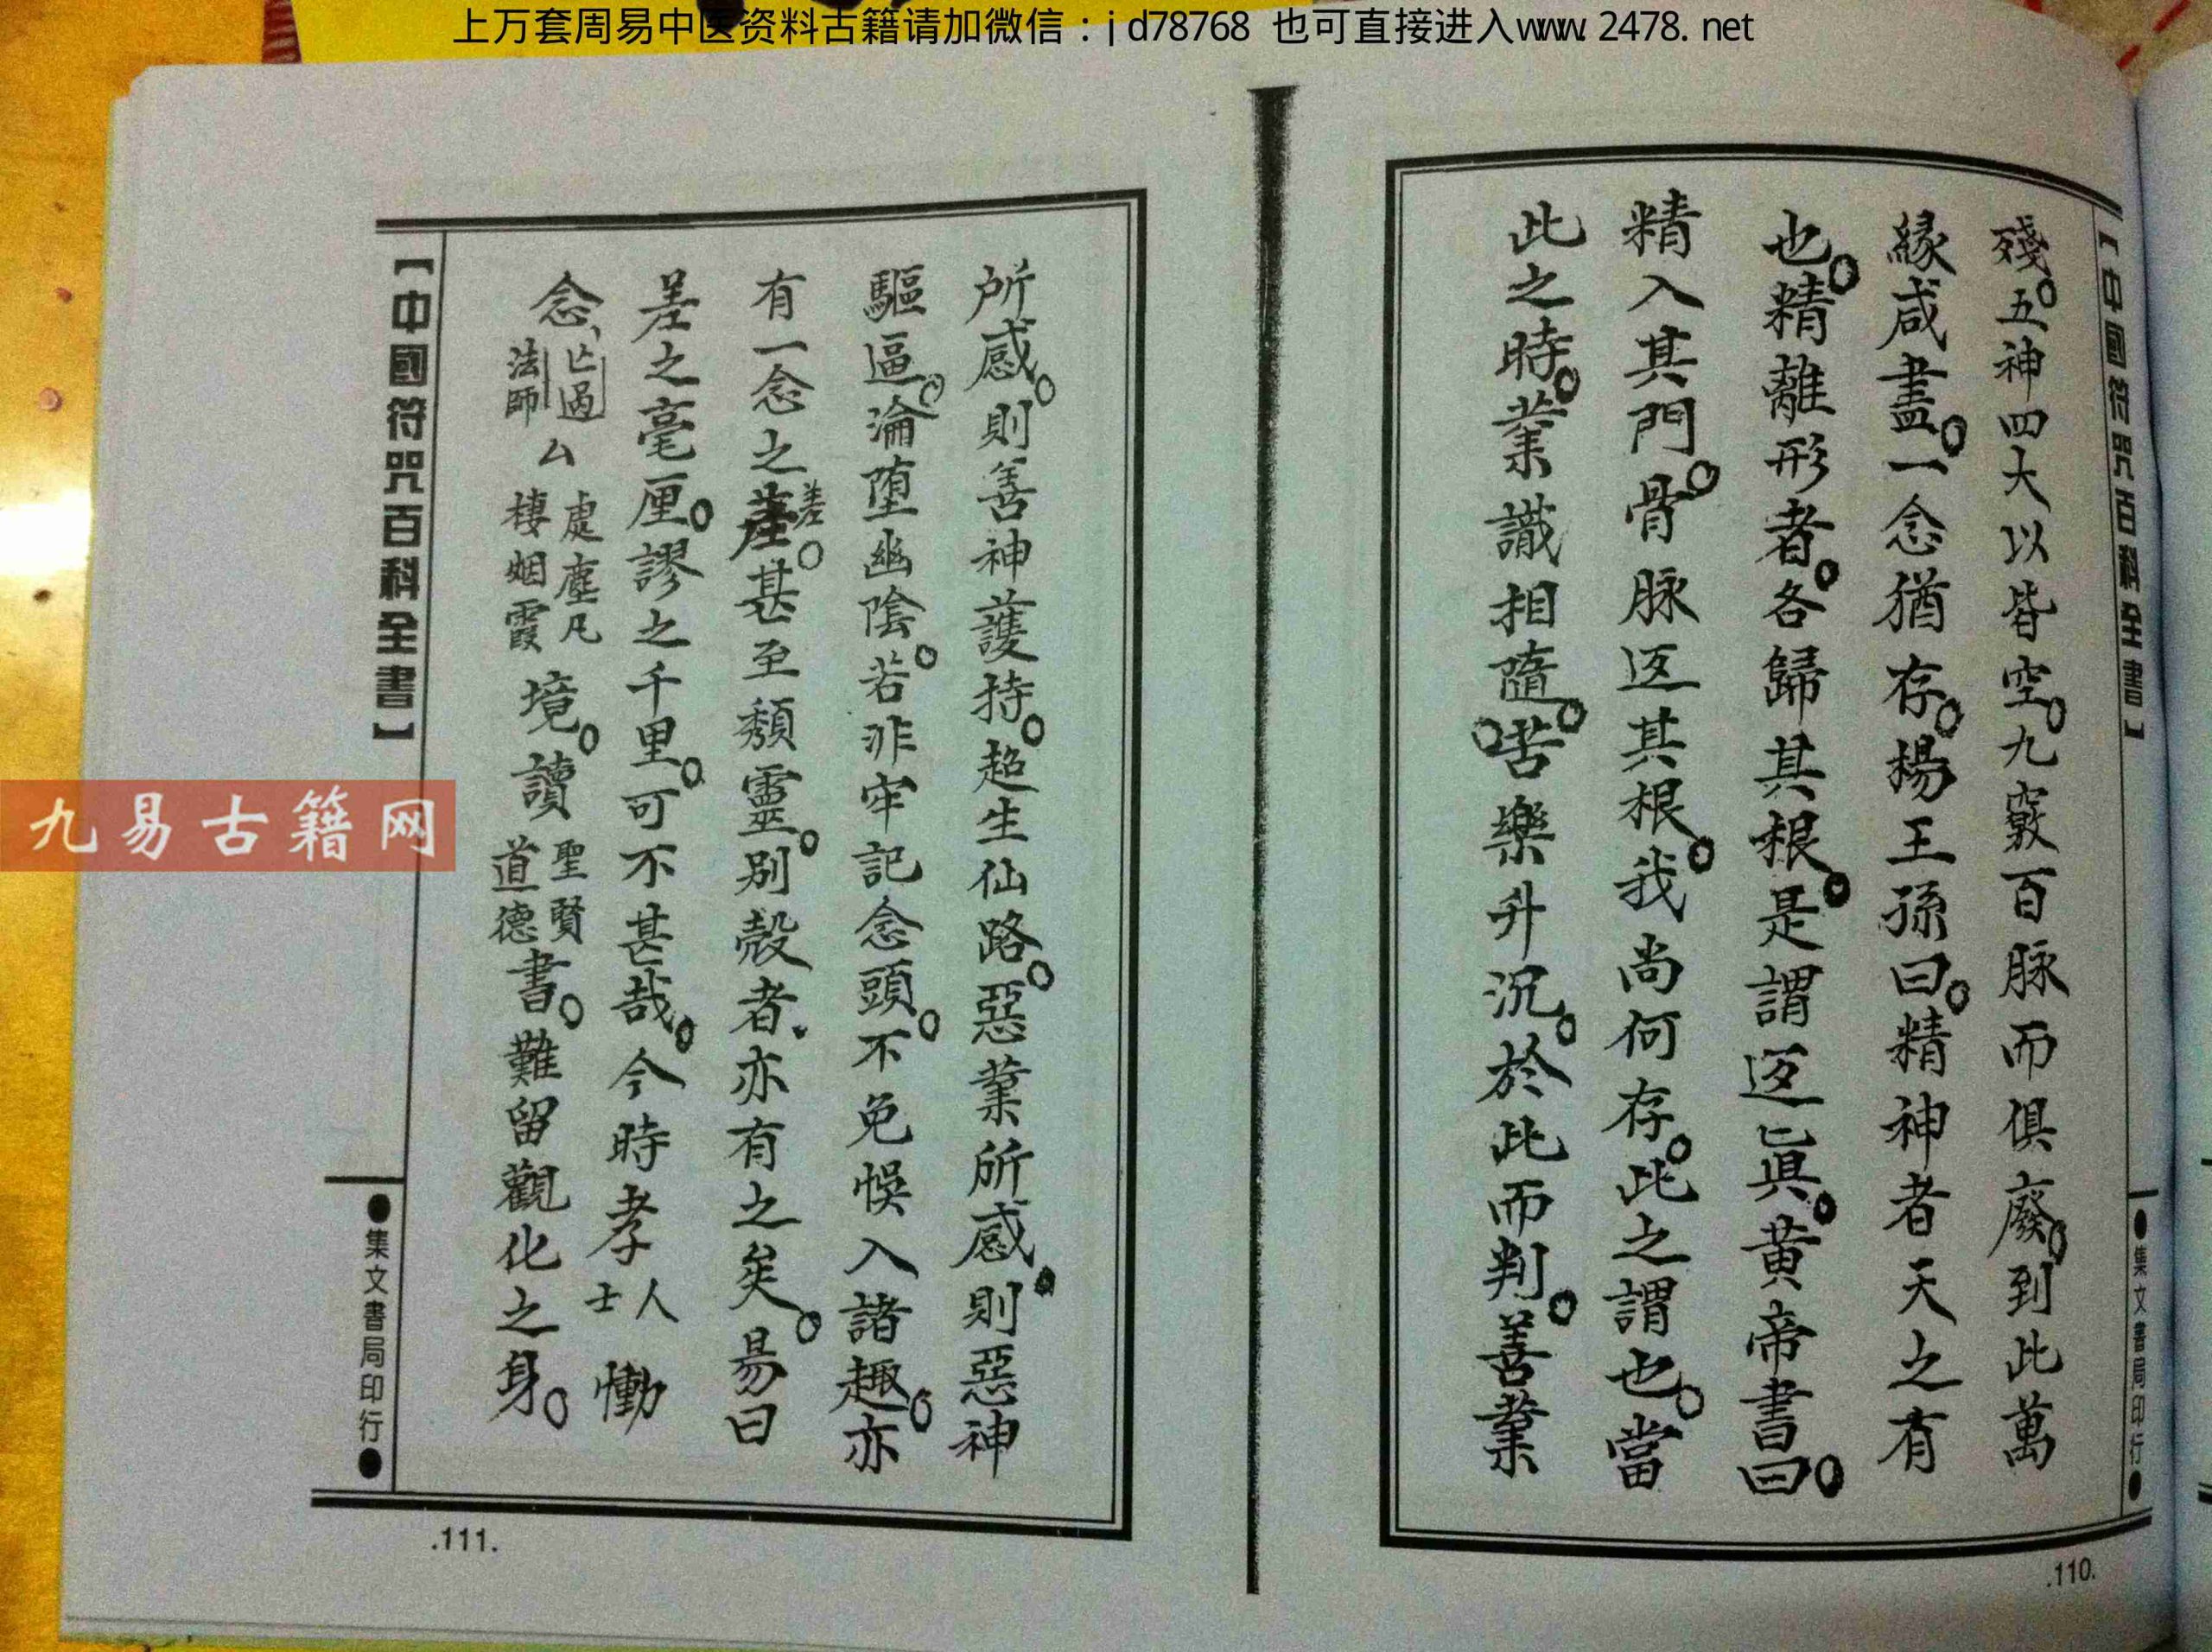 上万套周易中医资料古籍请加微信:jd78768 也可直接进入www.2478.net
【中國符咒百科全書】
●集文書局印行●
殘。五神四大以皆空。九竅百脉而俱廢。到此萬
緣咸盡。一念猶存。楊王孫曰。精神者天之有
也。精離形者。各歸其根。是謂返眞。黄帝書曰。
精入其門。骨脉返其根。我尚何存。此之謂也。當
此之時。業識相隨。苦樂升沉。於此而判。善業
.110.
所感。則善神護持。超生仙路。惡業所感。則惡神
驅逼。淪堕幽陰。若非牢記念頭。不免悮入諸趣。亦
有一念之差。甚至頽靈。别殼者。亦有之矣。易曰
差
差之毫厘。謬之千里。可不甚哉。今時孝人士慟
念、亡過法師厶處塵凡棲烟霞境。讀聖賢道德書。難留觀化之身。
【中國符咒百科全書】
●集文書局印行●
.111.
九易古籍网